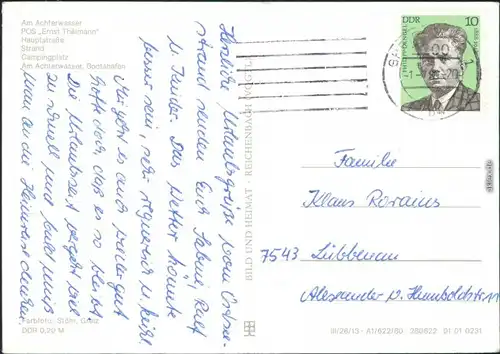 Am Achterwasser
POS „Ernst Thälmann“
Hauptstraße
Strand
Campingplatz
Am Achterwasser, Bootshafen
Herzliche Urlaubsgrüße vom Ostsee-
strand senden Euch Sabine, Ralf
u. Sandra. Das Wetter könnte
besser sein, sehr regnerisch u. kühl.
Uns geht es auch weiter gut
hoffe doch daß es so bleibt
Die Urlaubszeit vergeht viel
zu schnell und bald muß
man an die Heimreise denken.
Farbfoto: Stöhr, Greiz
DDR 0,20 M
BILD UND HEIMAT · REICHENBACH (VOGTL)
DDR
10
Familie
Klaus Rorains
7543 Lübbenau
Alexander v. Humboldtstr. 11
III/26/13 · A1/622/80 · 280622 01 01 0231